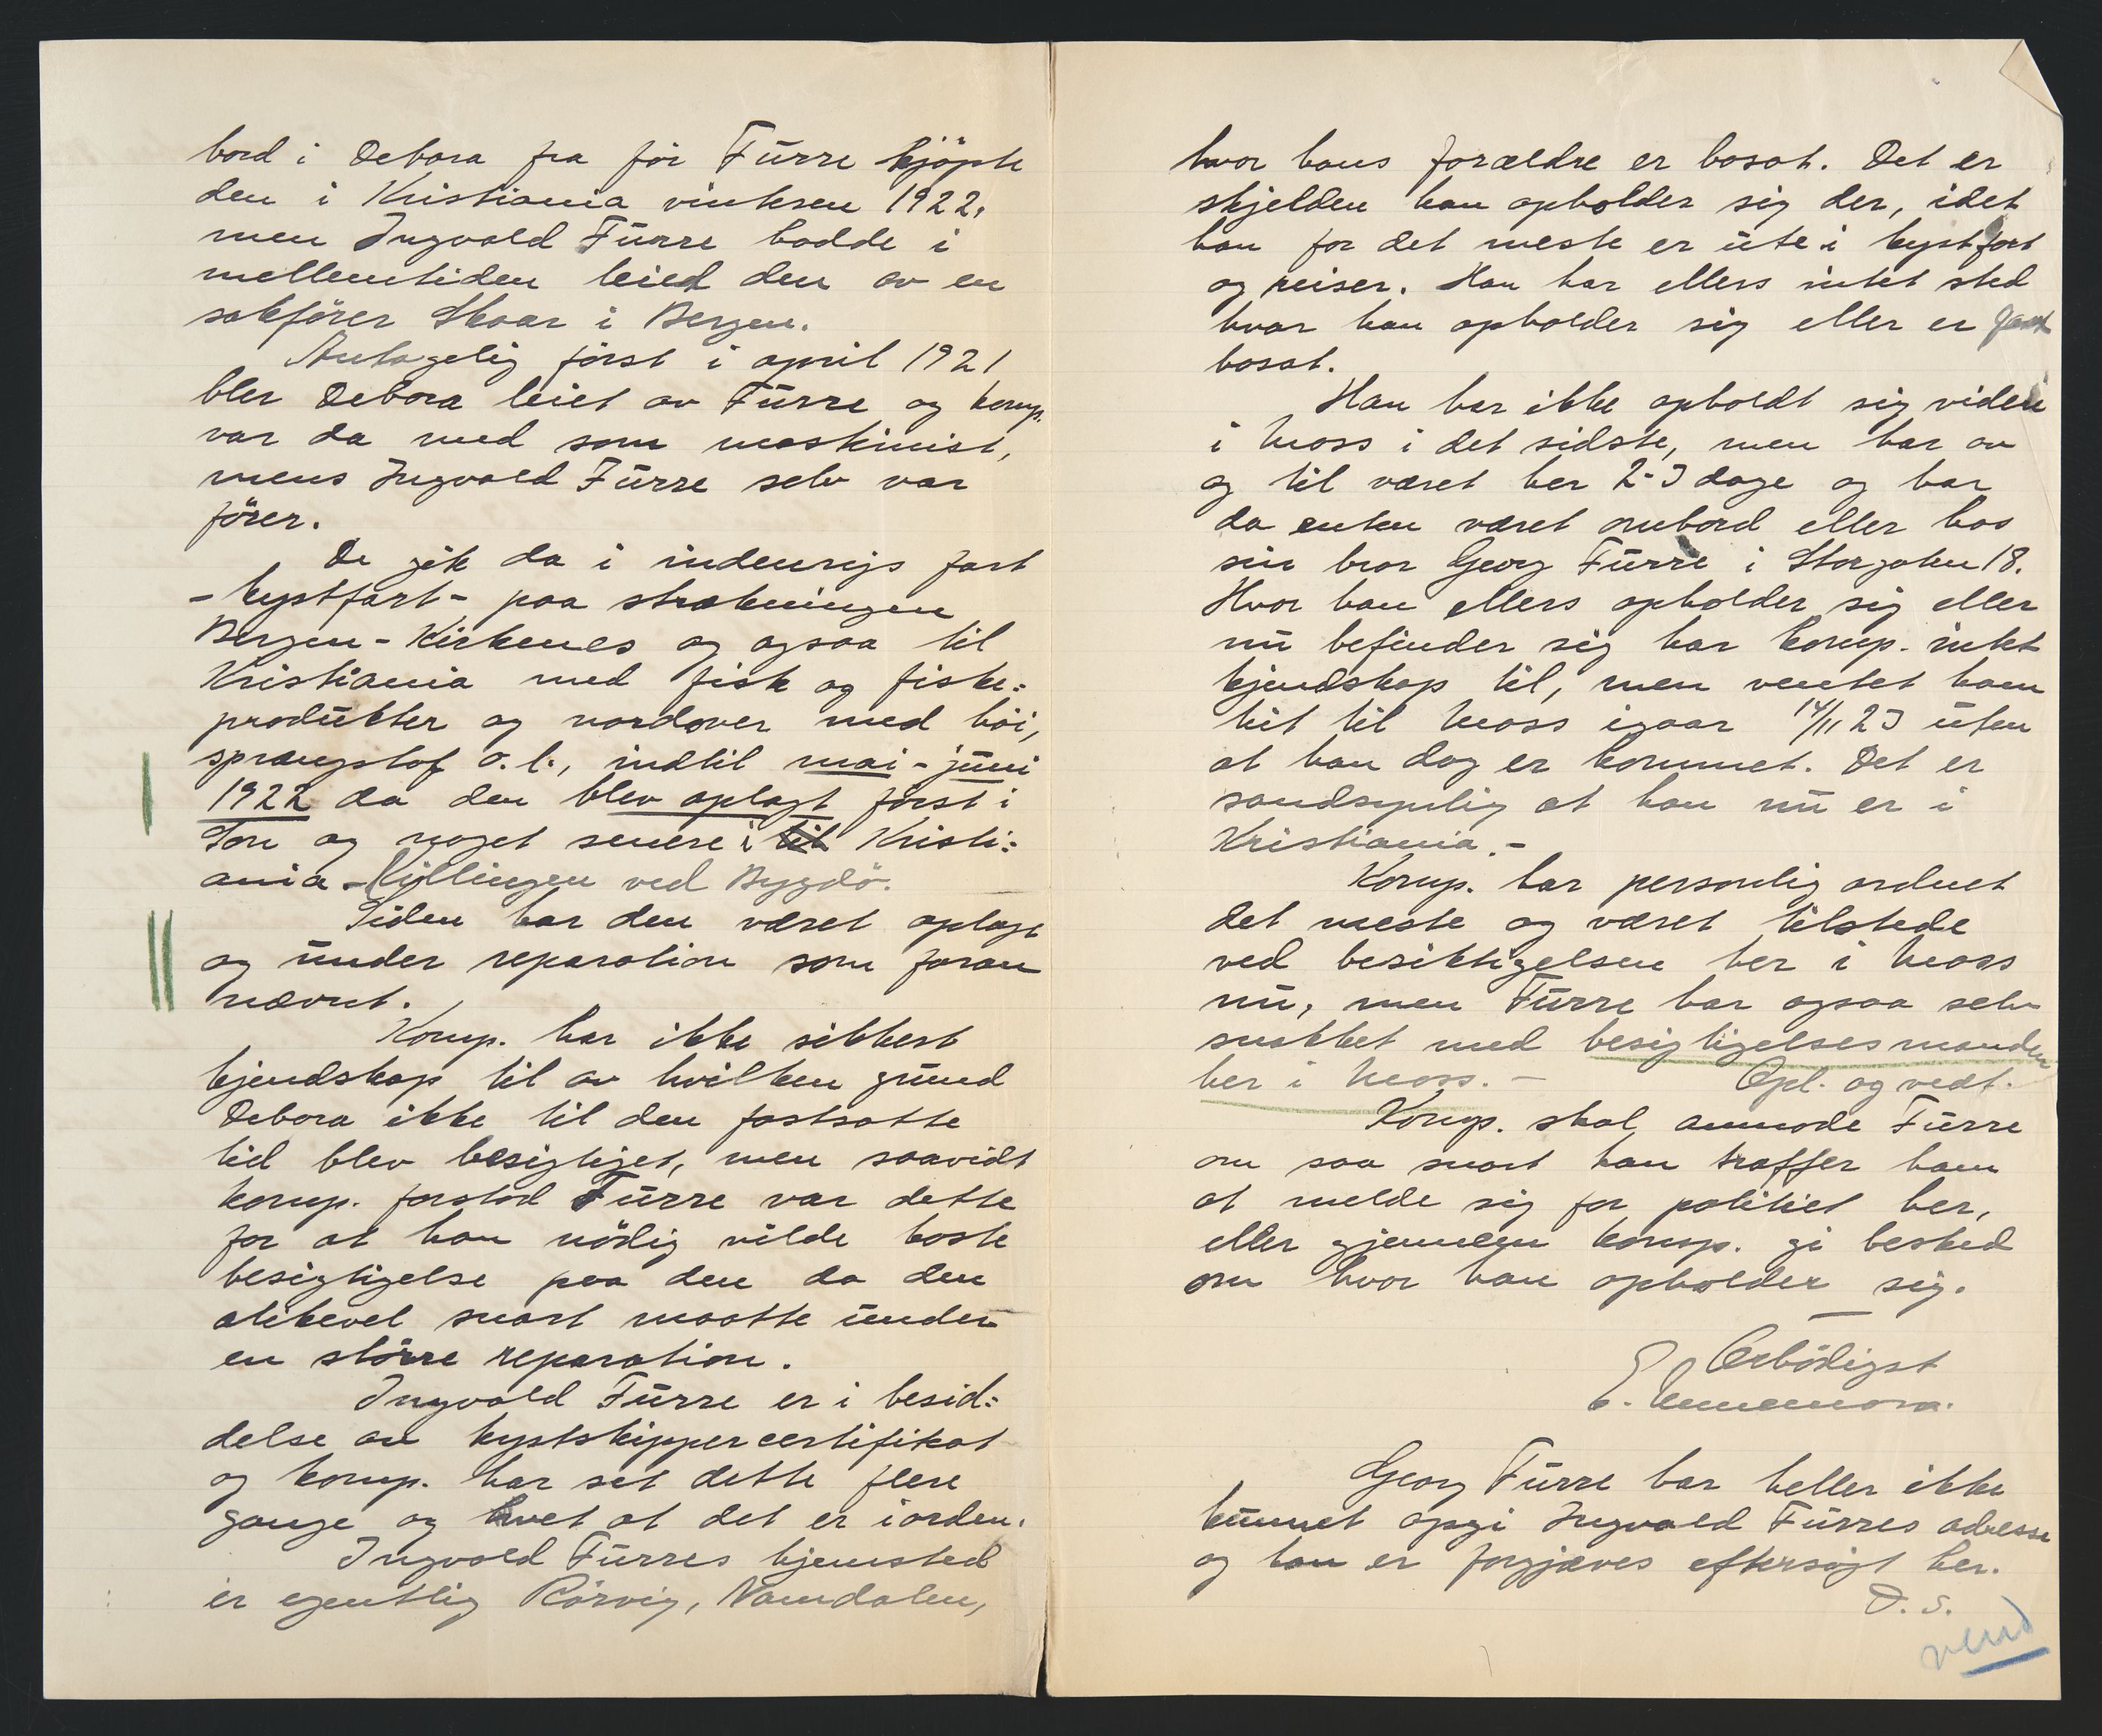 bord i Debora fra før Furre kjøpte
den i Kristiania vinteren 1922,
men Ingvald Furre hadde i
mellemtiden leied den av en
sakfører Skaar i Bergen.
Antagelig først i april 1921
blev Debora leiet av Furre og komp.
var da med som maskinist,
mens Ingvald Furre selv var
fører.
De gik da i indenrigs fart
- kystfart - paa strækningen
Bergen - Kirkenes og ogsaa til
Kristiania med fisk og fiske=
produkter og nordover med høi,
sprængstof o.l., indtil mai - juni
1922 da den blev oplagt først i
Son og noget senere i til Kristi=
ania - Killingen ved Bygdø.
Siden har den været oplagt
og under reparation som foran
nævnt.
Komp. har ikke sikkert
kjendskap til av hvilken grund
Debora ikke til den fastsatte
tid blev besigtiget, men saavidt
komp. forstod Furre var dette
for at han nødig vilde koste
besigtigelse paa den da den
alikevel snart maatte under
en større reparation.
Ingvald Furre er i besid=
delse av kystskippercertifikat
og komp. har set dette flere
gange og vet at det er iorden.
Ingvald Furres hjemsted
er egentlig Rørvig, Namdalen,
hvor hans forældre er bosat. Det er
skjelden han opholder sig der, idet
han for det meste er ute i kystfart
og reiser. Han har ellers intet sted
hvor han opholder sig eller er fast
bosat.
Han har ikke opholdt sig videre
i Moss i det sidste, men har av
og til været her 2-3 dage og har
da enten været ombord eller hos
sin bror Georg Furre i Storgaten 18.
Hvor han ellers opholder sig eller
nu befinder sig har komp. intet
kjendskap til, men ventet ham
hit til Moss igaar 14/11 23 uten
at han dog er kommet. Det er
sandsynlig at han nu er i
Kristiania. -
Komp. har personlig ordnet
det meste og været tilstede
ved besiktigelsen her i Moss
nu, men Furre har ogsaa selv
snakket med besigtigelsesmanden
her i Moss. - Opl. og vedt.
Komp. skal anmode Furre
om saa snart han træffer ham
at melde sig for politiet her,
eller gjennem komp. gi besked
om hvor han opholder sig.
Ærbødigst
Georg Furre har heller ikke
kunnet opgi Ingvald Furres adresse
og han er forgjæves eftersøgt her.
D. S.